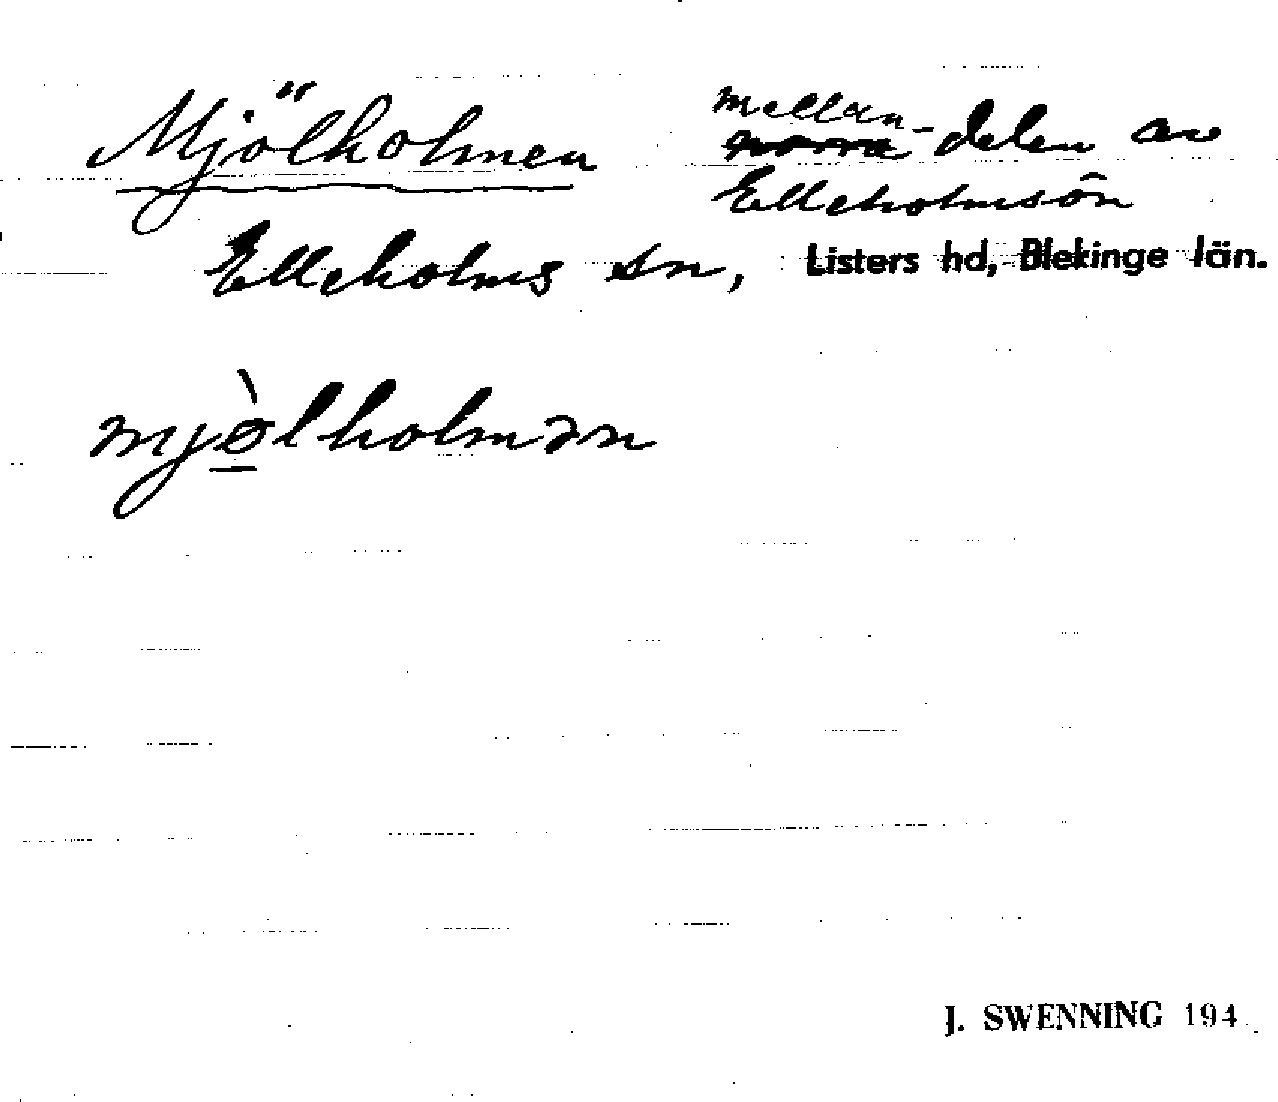 Mjölholmen
mellan-
norra delen av
Elleholmsön
Elleholms sn, Listers hd, Blekinge län.
mjø̲̀lholmən
J. SWENNING 194